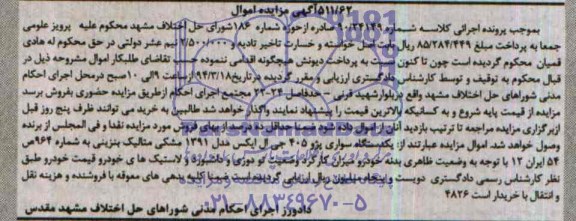 ۵۱۱/۶۲ آگهی مزایده اموال
بموجب پرونده اجرائی کلاسه شماره صادره از حوزه شماره ۱۸۶ شورای حل اختلاف مشهد محکوم علیه پرویز علومی
جمعا به پرداخت مبلغ ۸۵/۲۸۴/۴۴۹ ریال بابت اصل خواسته و خسارت تاخیر تادیه و ۲/۵۰۰/۰۰۰ نیم عشر دولتی در حق محکوم له هادی
قمیان محکوم گردیده است چون تا کنون نسبت به پرداخت دیونش هیچگونه اقدامی ننموده حسب تقاضای طلبکار اموال مشروحه ذیل در
قبال محکوم به توقیف و توسط کارشناس دادگستری ارزیابی و مقرر گردیده در تاریخ ۹۴/۳/۱۸ از ساعت ۹ الی ۱۰ صبح در محل اجرای احکام
مدنی شوراهای حل اختلاف مشهد واقع در بلوار شهید قرنی - حدفاصل ۲۲-۲۴ مجتمع اجرای احکام از طریق مزایده حضوری بفروش برسد
مزایده از قیمت پایه شروع و به کسانیکه بالاترین قیمت را پیشنهاد نمایند واگذار خواهد شد طالبین به خرید می توانند ظرف پنج روز قبل
از برگزاری مزایده مراجعه تا ترتیب بازدید آنان از اموال داده شود ضمنا حداقل ده درصد از بهای فروش مورد مزایده نقدا و فی المجلس از برنده
وصول خواهد شد. اموال مزایده عبارتند از: یکدستگاه سواری پژو ۴۰۵ جی ال ایکس مدل ۱۳۹۱ مشکی متالیک بنزینی به شماره ۹۶۴ص
۵۴ ایران ۱۲ با توجه به وضعیت ظاهری بدنه خودرو میزان کارکرد وضعیت تو دوزی و داشبورد و لاستیک ها ی خودرو قیمت خودرو طبق
نظر کارشناس رسمی دادگستری دویست و پنجاه میلیون ریال ارزیابی گردیده است ضمنا کلیه بدهی های معوقه با فروشنده و هزینه نقل
و انتقال با خریدار است ۴۸۲۶
دادورز اجرای احکام مدنی شوراهای حل اختلاف مشهد مقدس
۰۲۱-۸۸۳۴۹۶۷۰-۵